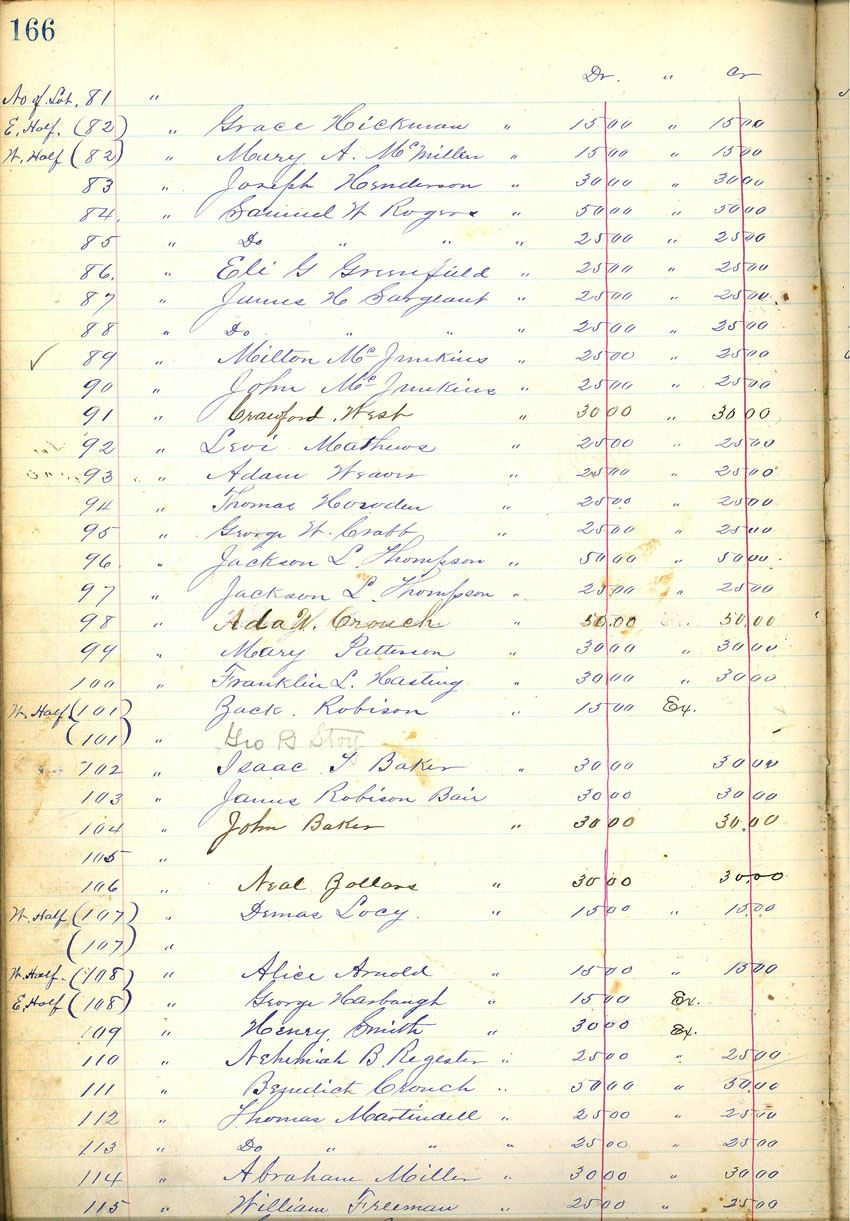 166
Dr. " Cr
No of Lot. 81 "
E. Half. (82) " Grace Hickman " 15 00 " 15 00
W. Half (82) " Mary A. McMillen " 15 00 " 15 00
83 " Joseph Henderson " 30 00 " 30 00
84. " Samuel W Rogers " 50 00 " 50 00
85 " Do " " " 25 00 " 25 00
86. " Eli G Greenfield " 25 00 " 25 00
87 " James H Sargeant " 25 00 " 25 00
88 " Do " " 25 00 " 25 00
✓ 89 " Milton McJunkins " 25 00 " 25 00
90 " John McJunkins " 25 00 " 25 00
91 " Crawford West " 30 00 " 30 00
92 " Levi Mathews " 25 00 " 25 00
93 " Adam Weaver " 25 00 " 25 00
94 " Thomas " 25 00 " 25 00
95 " George W. Crabb " 25 00 " 25 00
96. " Jackson L. Thompson " 50 00 " 50 00
97 " Jackson L. Thompson " 25 00 " 25 00
98 " Ada W. Crouch " 50.00 50.00
99 " Mary Patterson " 30 00 " 30 00
100 " Franklin L. Hasting " 30 00 " 30 00
W. Half (101) Zack. Robison " 15 00 Ex.
(101) " Geo B Stoy
102 " Isaac T Baker " 30 00 30 00
103 " James Robison Bair 30 00 30 00
104 " John Baker " 30 00 30.00
105 "
106 " Neal Zollars " 30 00 30.00
W. Half (107) " Demas Locy. " 15 00 " 15.00
(107) "
W. Half. (108) " Alice Arnold " 15 00 " 15 00
E. Half (108) " George Harbaugh " 15 00 Ex.
109 " Henry Smith " 30 00 Ex.
110 " Nehimiah B. Regester " 25 00 " 25 00
111 " Benedict Crouch " 50 00 " 50.00
112 " Thomas Martindell " 25 00 " 25 00
113 " Do " " " 25 00 " 25 00
114 " Abraham Miller " 30 00 " 30 00
115 " William Freeman " 25 00 " 25 00